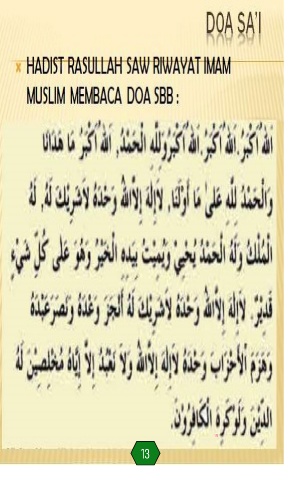 DOA SA'I
HADIST RASULLAH SAW RIWAYAT IMAM
MUSLIM MEMBACA DOA SBB :
اَللهُ اَكْبَرُ. اَللهُ اَكْبَرُ. اَللهُ اَكْبَرُ وَلِلّٰهِ الْحَمْدُ, اَللهُ اَكْبَرُ مَا هَدَانَا
وَالْحَمْدُ لِلّٰهِ عَلىٰ مَا أَوْلَنَا, لاَإِلٰهَ إِلاَّاللهُ وَحْدَهُ لاَشَرِيْكَ لَهُ, لَهُ
الْمُلْكُ وَلَهُ الْحَمْدُ يُحْيِيْ وَيُمِيْتُ بِيَدِهِ الْخَيْرُ وَهُوَ عَلَى كُلِّ شَيْءٍ
قَدِيْرٌ. لاَإِلٰهَ إِلاَّاللهُ وَحْدَهُ لاَشَرِيْكَ لَهُ أَنْجَزَ وَعْدَهُ وَنَصَرَعَبْدَهُ
وَهَزَمَ الْأَحْزَابَ وَحْدَهُ لاَإِلٰهَ إِلاَّاللهُ وَلاَ نَعْبُدُ إِلاَّ إِيَّاهُ مُخْلِصِيْنَ لَهُ
الدِّيْنَ وَلَوْكَرِهَ الْكَافِرُوْنَ.
13